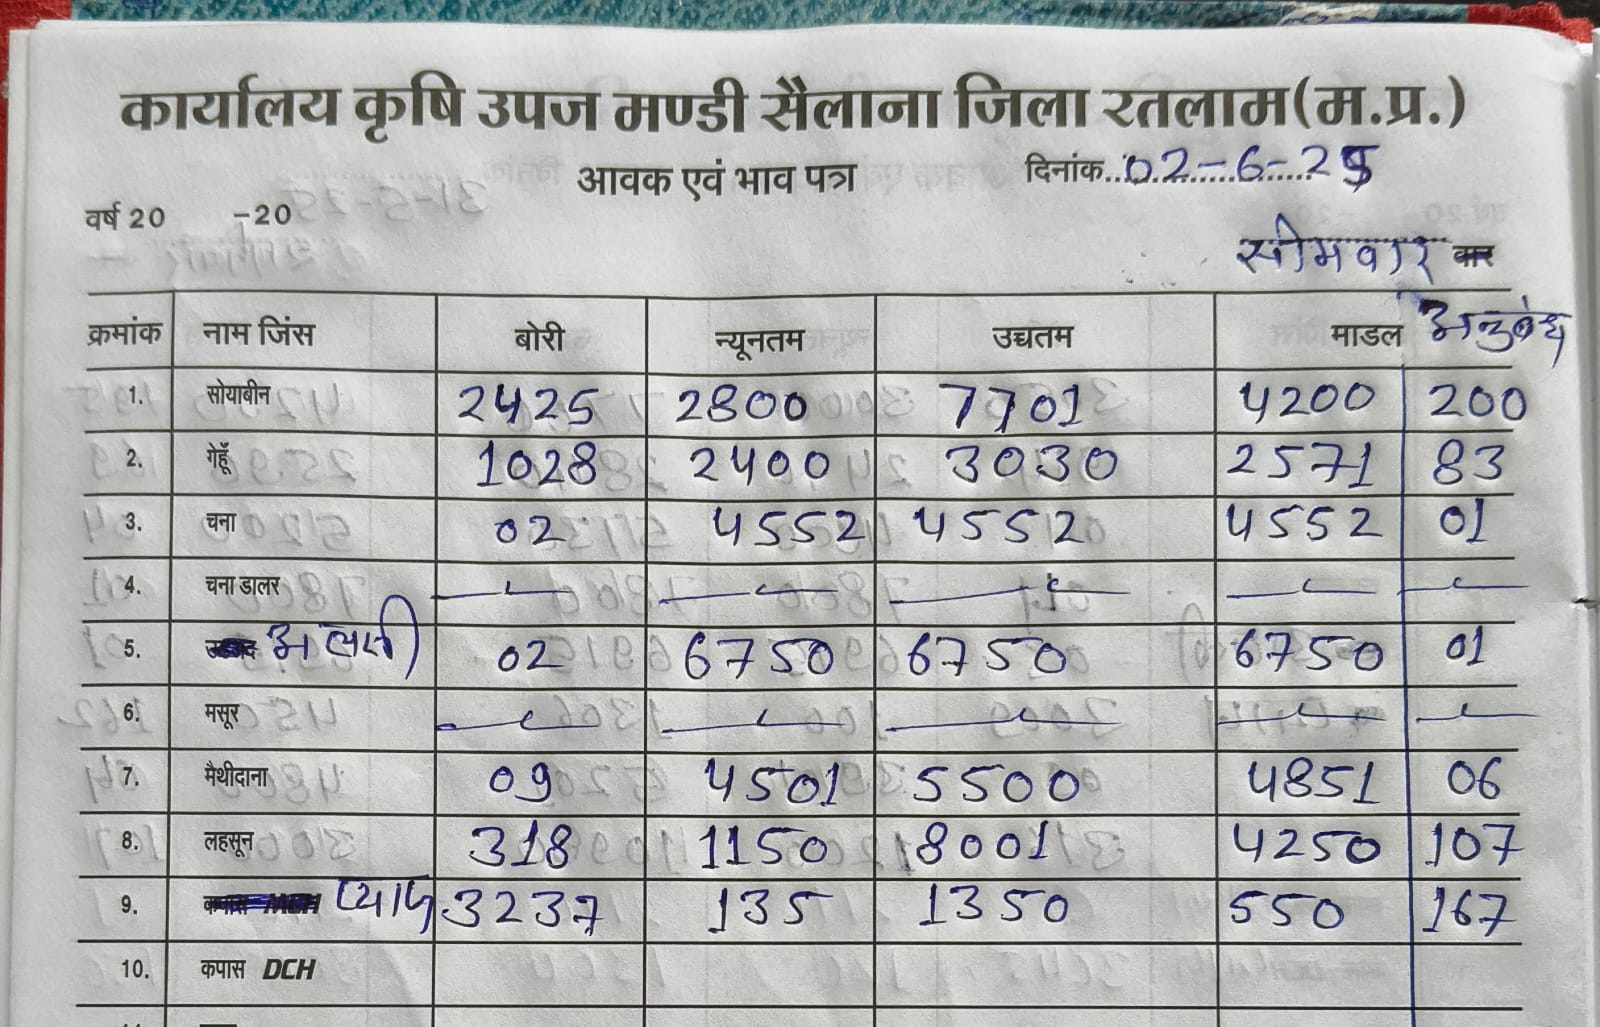 कार्यालय कृषि उपज मण्डी सैलाना जिला रतलाम(म.प्र.)
आवक एवं भाव पत्र दिनांक..02-6-25
वर्ष 20 -20
सोमवार वार
क्रमांक नाम जिंस बोरी न्यूनतम उच्चतम माडल अनुबंध
1. सोयाबीन 2425 2800 7701 4200 200
2. गेहूँ 1028 2400 3030 2571 83
3. चना 02 4552 4552 4552 01
4. चना डालर — — — — —
5. अलसी 02 6750 6750 6750 01
6. मसूर — — — — —
7. मैथीदाना 09 4501 5500 4851 06
8. लहसून 318 1150 18001 4250 107
9. प्याज 3237 135 1350 550 167
10. कपास DCH